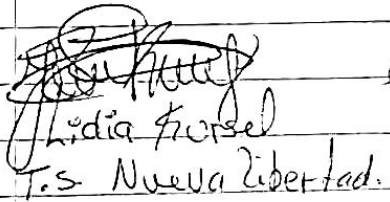 Lidia Kursel
T.s. Nueva libertad.